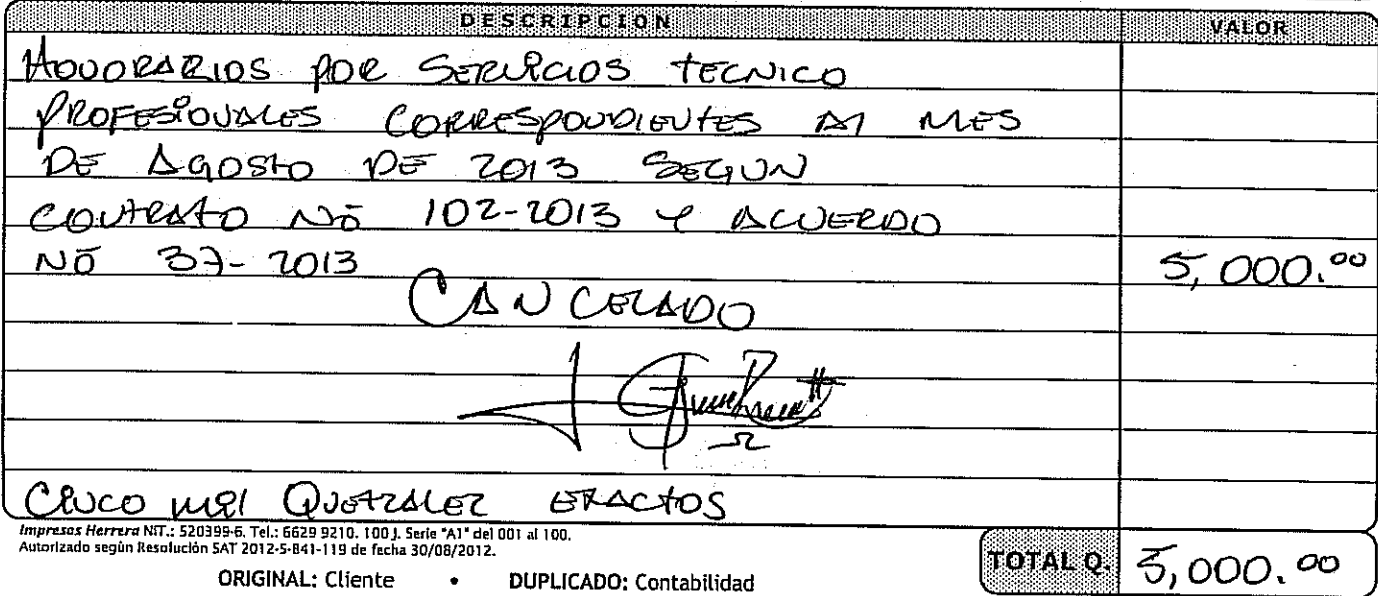 DESCRIPCION VALOR
HONORARIOS POR SERVICIOS TECNICO
PROFESIONALES CORRESPONDIENTES AL MES
DE AGOSTO DE 2013 SEGUN
CONTRATO Nō 102-2013 Y ACUERDO
Nō 37-2013 5,000.00
CANCELADO
CINCO MIL QUETZALEZ EXACTOS
Impresos Herrera NIT.: 520399-6. Tel.: 6629 9210. 100 J. Serie "A1" del 001 al 100.
Autorizado según Resolución SAT 2012-5-841-119 de fecha 30/08/2012.
TOTAL Q. 5,000.00
ORIGINAL: Cliente • DUPLICADO: Contabilidad